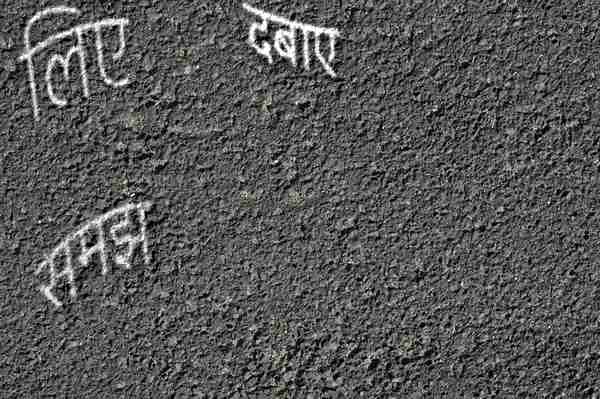 लिए
दबाए
समझ